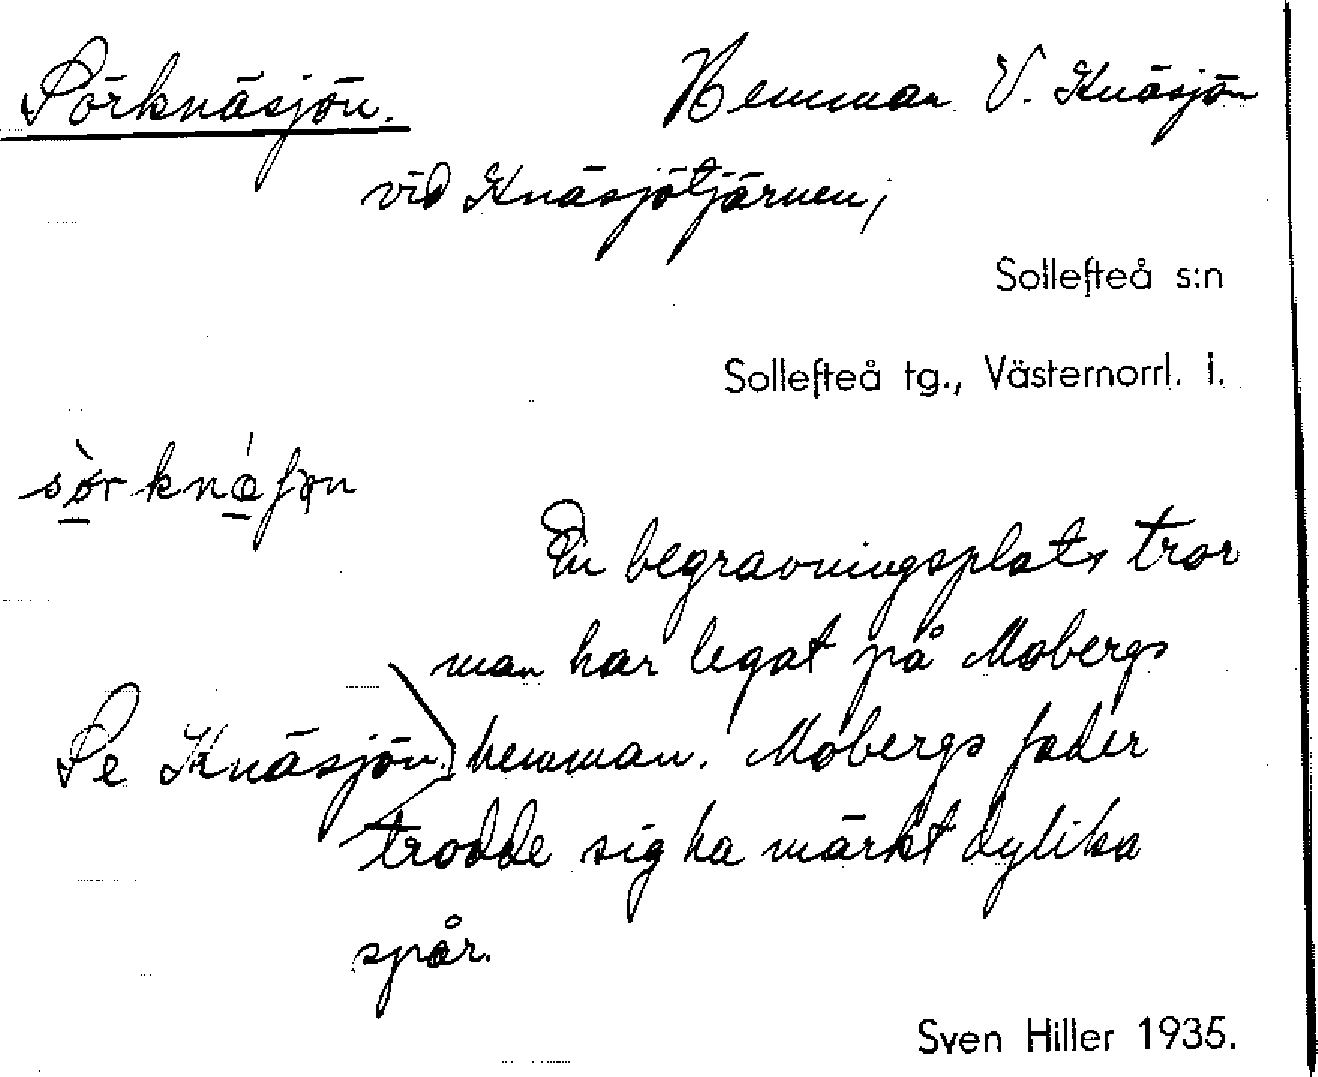 Sörknäsjön. Hemman V. Knäsjön
vid Knäsjötjärnen,
Sollefteå s:n
Sollefteå tg., Västernorrl. l.
En begravningsplats tror
man har legat på Mobergs
Se Knäsjön. hemman. Mobergs fader
trodde sig ha märkt dylika
spår.
Sven Hiller 1935.